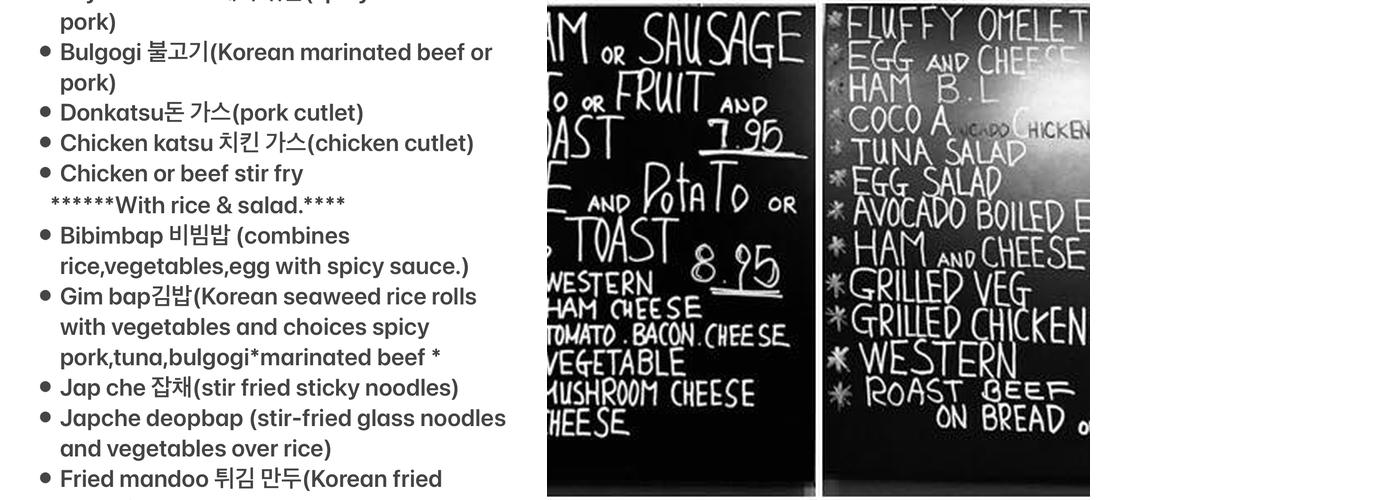 pork)
Bulgogi 불고기(Korean marinated beef or
pork)
Donkatsu돈 가스(pork cutlet)
Chicken katsu 치킨 가스(chicken cutlet)
Chicken or beef stir fry
******With rice & salad.****
Bibimbap 비빔밥 (combines
rice,vegetables,egg with spicy sauce.)
Gim bap김밥(Korean seaweed rice rolls
with vegetables and choices spicy
pork,tuna,bulgogi*marinated beef *
Jap che 잡채(stir fried sticky noodles)
Japche deopbap (stir-fried glass noodles
and vegetables over rice)
Fried mandoo 튀김 만두(Korean fried
AM OR SAUSAGE
TO OR FRUIT AND
OAST 7.95
E AND POTATO OR
TOAST
8.95
WESTERN
HAM CHEESE
TOMATO.BACON.CHEESE
VEGETABLE
MUSHROOM CHEESE
CHEESE
* FLUFFY OMELET
* EGG AND CHEESE
* HAM B.L
* COCO AVOCADO CHICKEN
* TUNA SALAD
* EGG SALAD
* AVOCADO BOILED E
* HAM AND CHEESE
* GRILLED VEG
* GRILLED CHICKEN
* WESTERN
* ROAST BEEF
ON BREAD